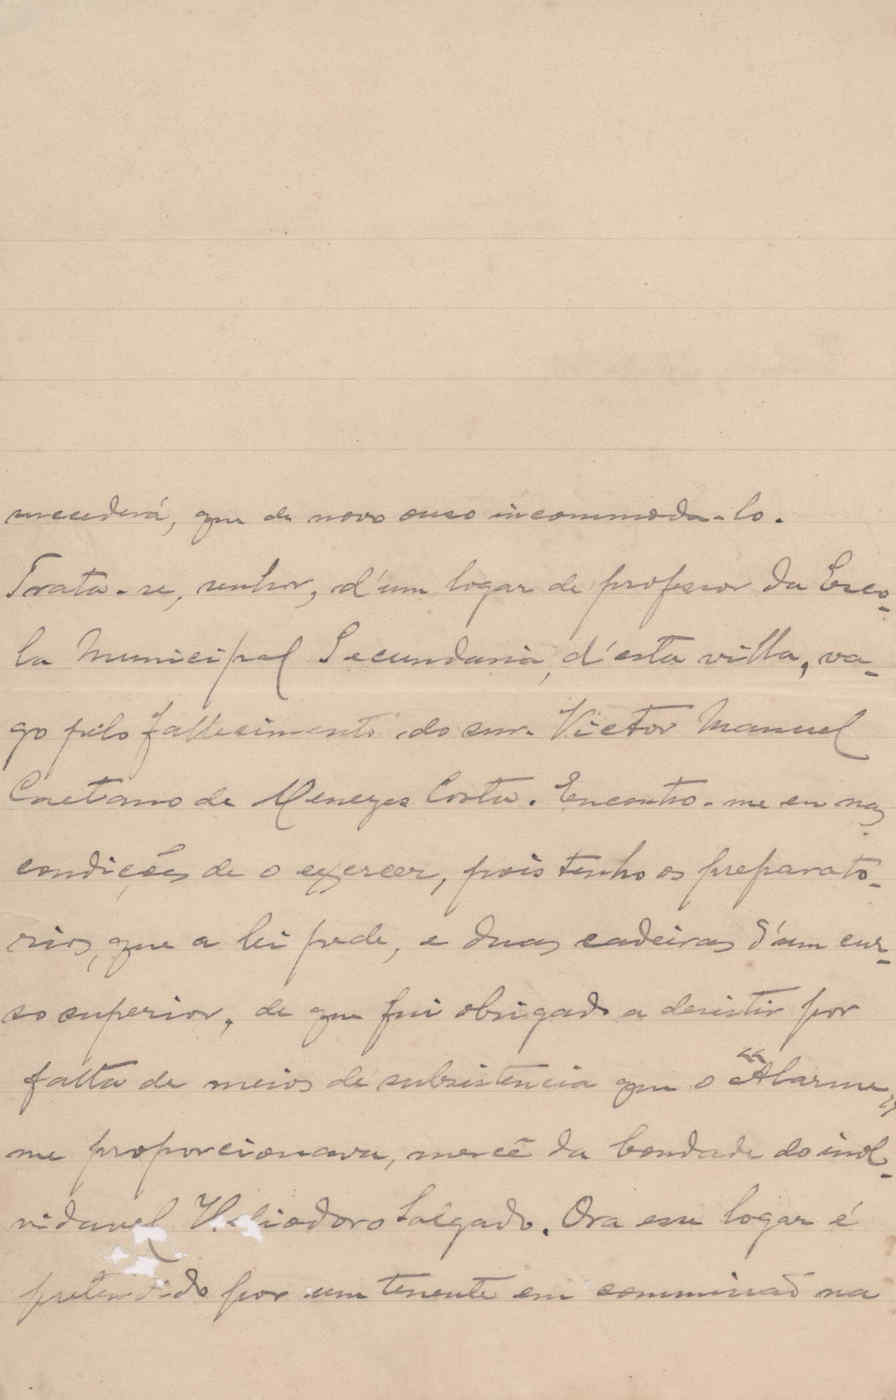 succederá, que de novo ouso incommoda-lo.
Trata-se, senhor, d'um logar de professor da Esco-
la Municipal Secundaria, d'esta villa, va-
go pelo fallecimento do snr. Victor Manuel
Caetano de Menezes Costa. Encontro-me eu nas
condições de o exercer, pois tenho os preparato-
rios, que a lei pede, e duas cadeiras d'um cur-
so superior, de que fui obrigado a desistir por
falta de meios de subsistencia que o "Alarme"
me proporcionava, mercê da bondade do inol-
vidavel Heliodoro Salgado. Ora esse logar é
pretendido por um tenente em commissaõ na